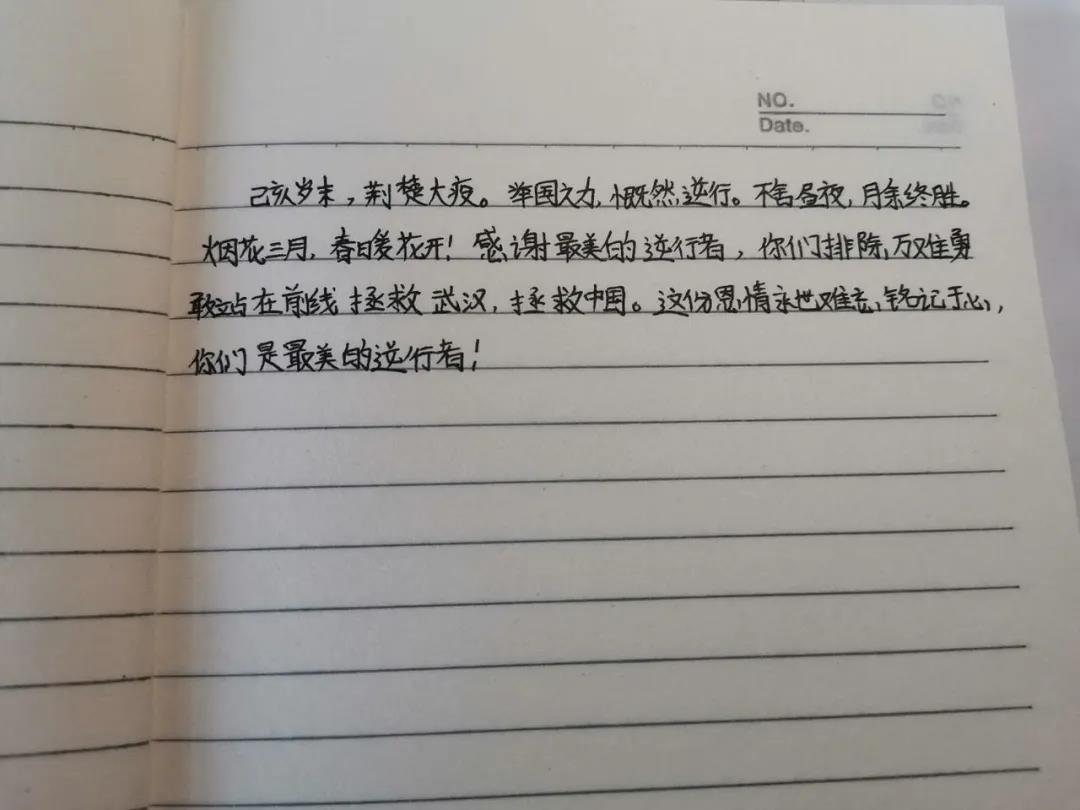 NO.
Date.
己亥岁末，荆楚大疫。举国之力，慨然逆行。不舍昼夜，月余终胜。
烟花三月，春日暖花开！感谢最美的逆行者，你们排除万难勇
敢站在前线 拯救武汉，拯救中国。这份恩情永世难忘，铭记于心，
你们是最美的逆行者！